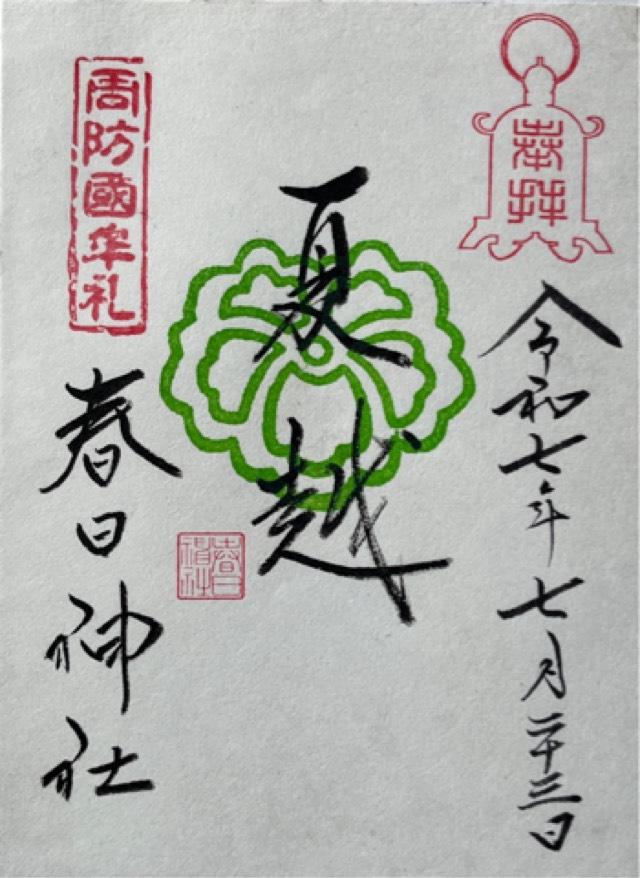 奉拝
令和七年七月二十三日
夏越
周防國牟礼
春日神社
春日神社